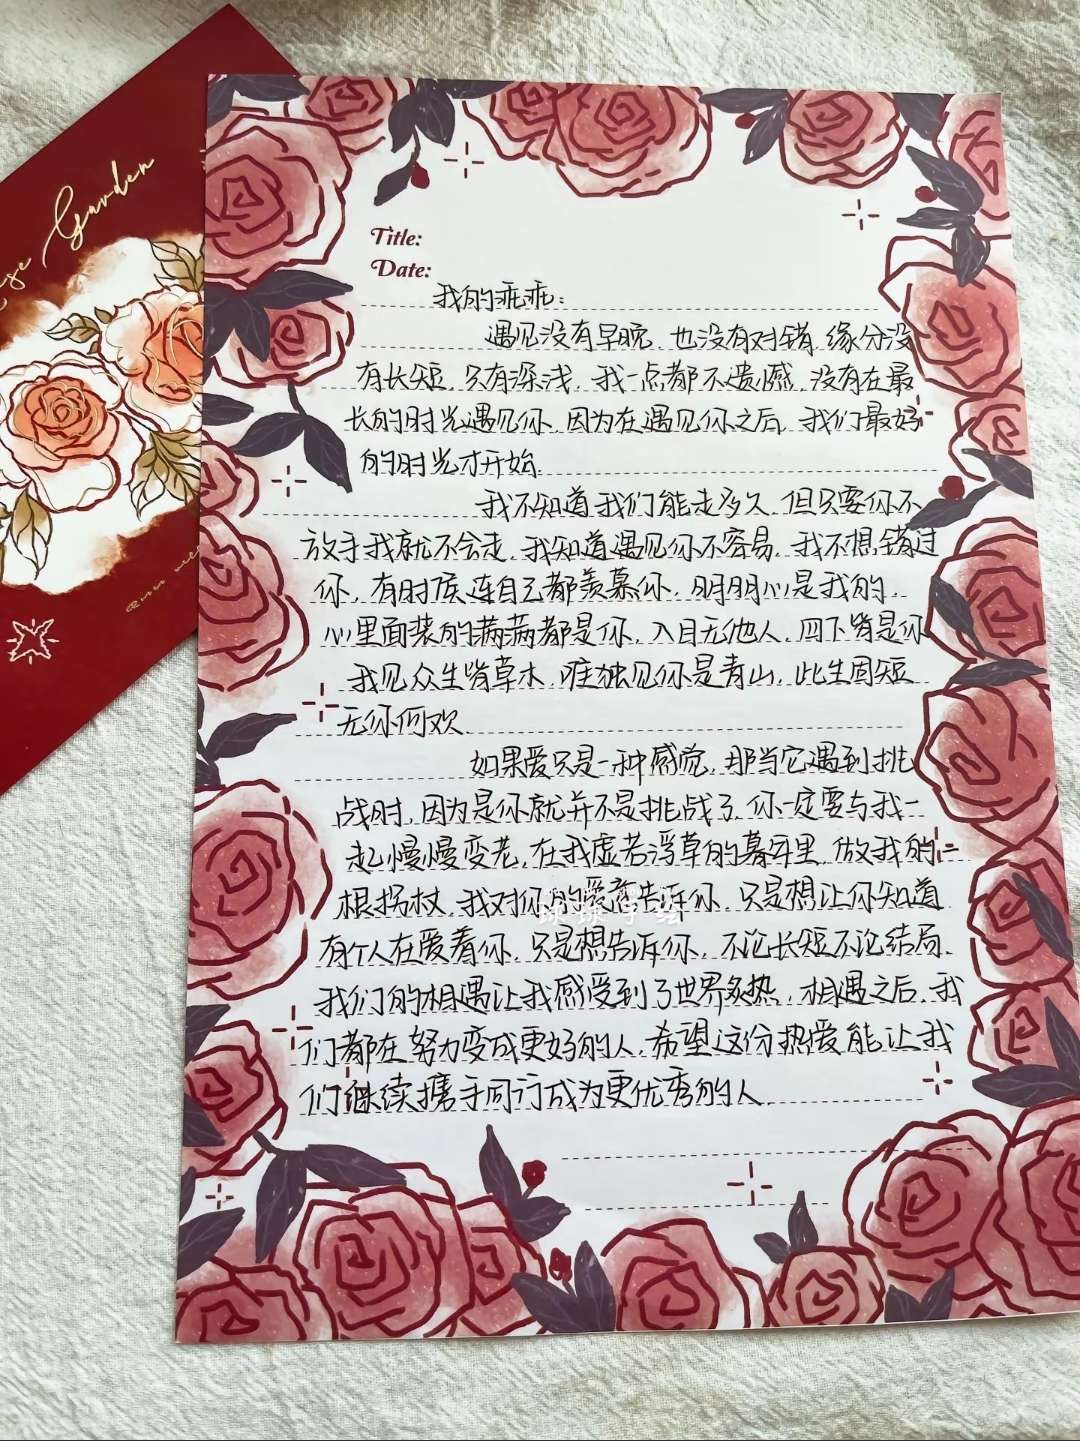 Garden
Title:
Date:
我的乖乖:
遇见没有早晚,也没有对错,缘分没
有长短,只有深浅,我一点都不遗憾,没有在最
长的时光遇见你,因为在遇见你之后,我们最好
的时光才开始.
我不知道我们能走多久,但只要你不
放手我就不会走,我知道遇见你不容易,我不想错过
你,有时候连自己都羡慕你,明明心是我的,
心里面装的满满都是你,入目无他人,四下皆是你
我见众生皆草木,唯独见你是青山,此生固短
无你何欢.
如果爱只是一种感觉,那当它遇到挑
战时,因为是你就并不是挑战了,你一定要与我一
起慢慢变老,在我虚若浮草的暮年里,做我的一
根拐杖,我对你的爱意告诉你,只是想让你知道
有个人在爱着你,只是想告诉你,不论长短不论结局.
我们的相遇让我感受到了世界炙热,相遇之后,我
们都在努力变成更好的人,希望这份热爱能让我
们继续携手同行成为更优秀的人.